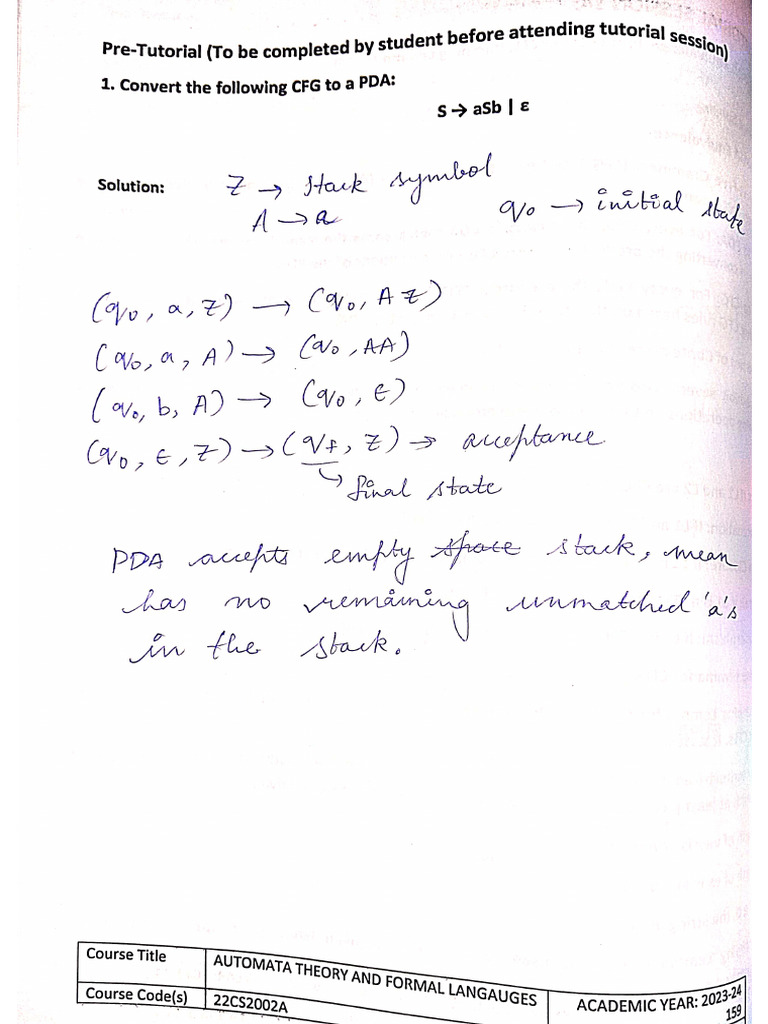 Pre-Tutorial (To be completed by student before attending tutorial session)
1. Convert the following CFG to a PDA:
S → aSb | ε
Solution: Z → stack symbol
A → a q₀ → initial state
(q₀, a, Z) → (q₀, A Z)
(q₀, a, A) → (q₀, AA)
(q₀, b, A) → (q₀, ε)
(q₀, ε, Z) → (qf, Z) → acceptance
↳ final state
PDA accepts empty space stack, mean
has no remaining unmatched 'a's
in the stack.
Course Title AUTOMATA THEORY AND FORMAL LANGAUGES
Course Code(s) 22CS2002A ACADEMIC YEAR: 2023-24
159